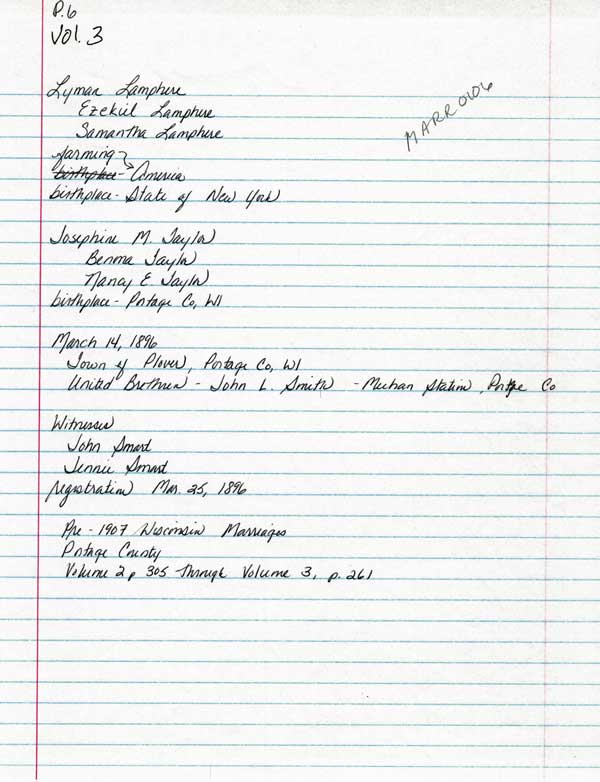 P.6
Vol. 3
MARR0106
Lyman Lamphere
Ezekiel Lamphere
Samantha Lamphere
farming
birthplace - America
birthplace - State of New York
Josephine M. Taylor
Taylor
Nancy E. Taylor
birthplace - Portage Co, WI
March 14, 1896
Town of Plover, Portage Co, WI
United Brethren - John L. Smith - Meehan Station, Portage Co
Witnesses
John Smart
Jennie Smart
registration Mar. 25, 1896
Pre - 1907 Wisconsin Marriages
Portage County
Volume 2 p 305 Through Volume 3, p. 261